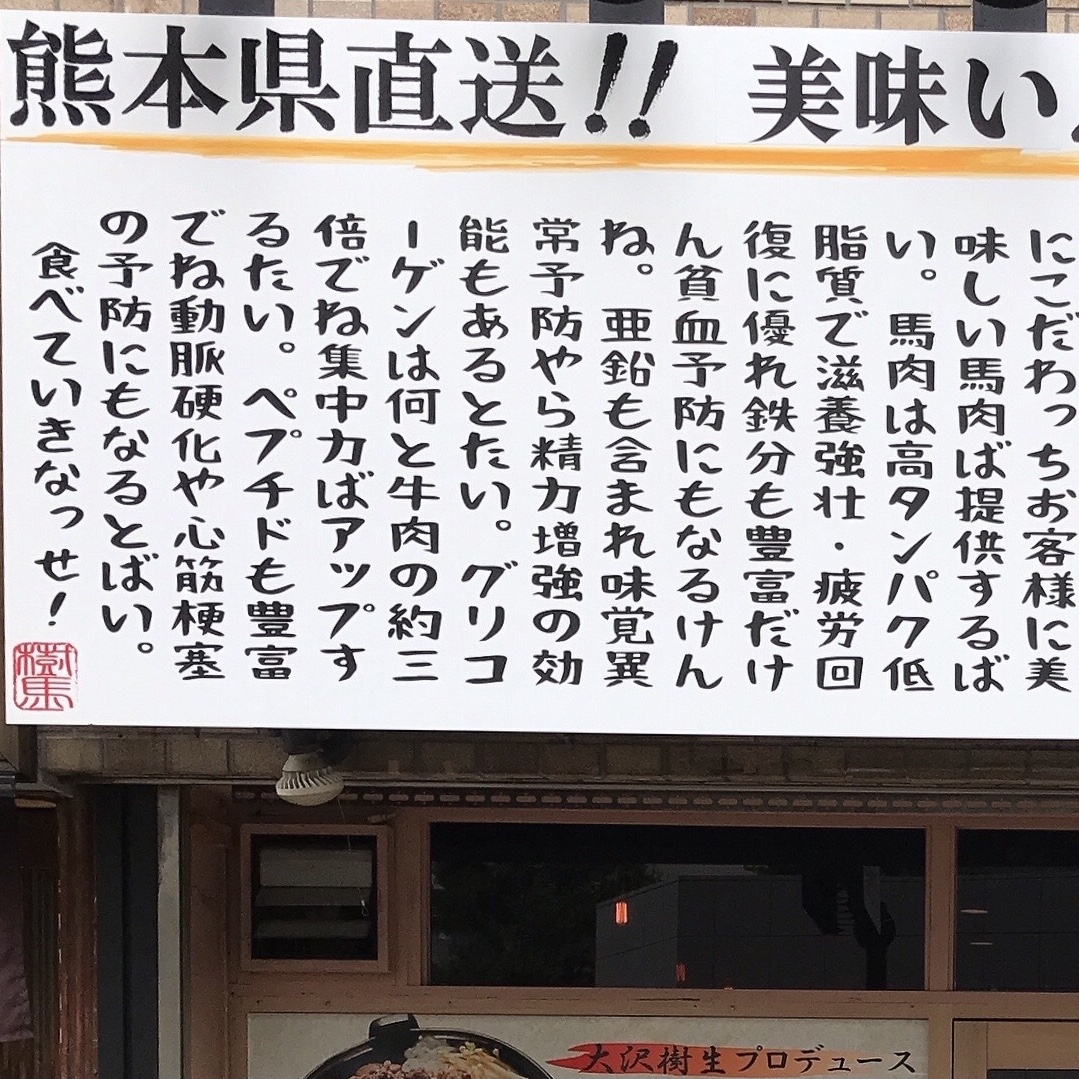 熊本県直送!! 美味い
にこだわっちお客様に美
味しい馬肉ば提供するば
い。馬肉は高タンパク低
脂質で滋養強壮・疲労回
復に優れ鉄分も豊富だけ
ん貧血予防にもなるけん
ね。亜鉛も含まれ味覚異
常予防やら精力増強の効
能もあるとたい。グリコ
ーゲンは何と牛肉の約三
倍でね集中力ばアップす
るたい。ペプチドも豊富
でね動脈硬化や心筋梗塞
の予防にもなるとばい。
食べていきなっせ!
樹馬
大沢樹生プロデュース